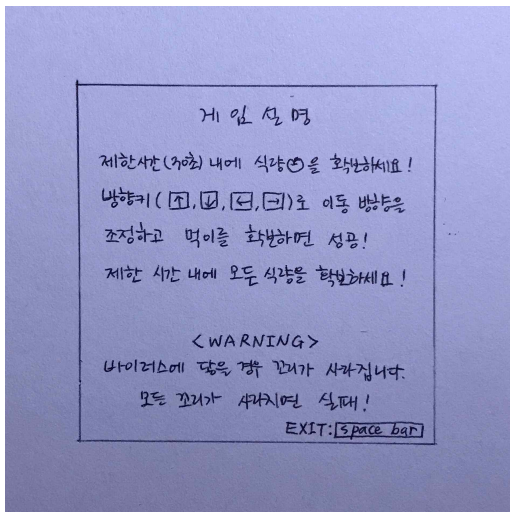 게임 설명
제한시간(30초) 내에 식량을 확보하세요!
방향키(↑,↓,←,→)로 이동 방향을
조정하고 먹이를 확보하면 성공!
제한 시간 내에 모든 식량을 확보하세요!
<WARNING>
바이러스에 닿을 경우 꼬리가 사라집니다.
모든 꼬리가 사라지면 실패!
EXIT: space bar